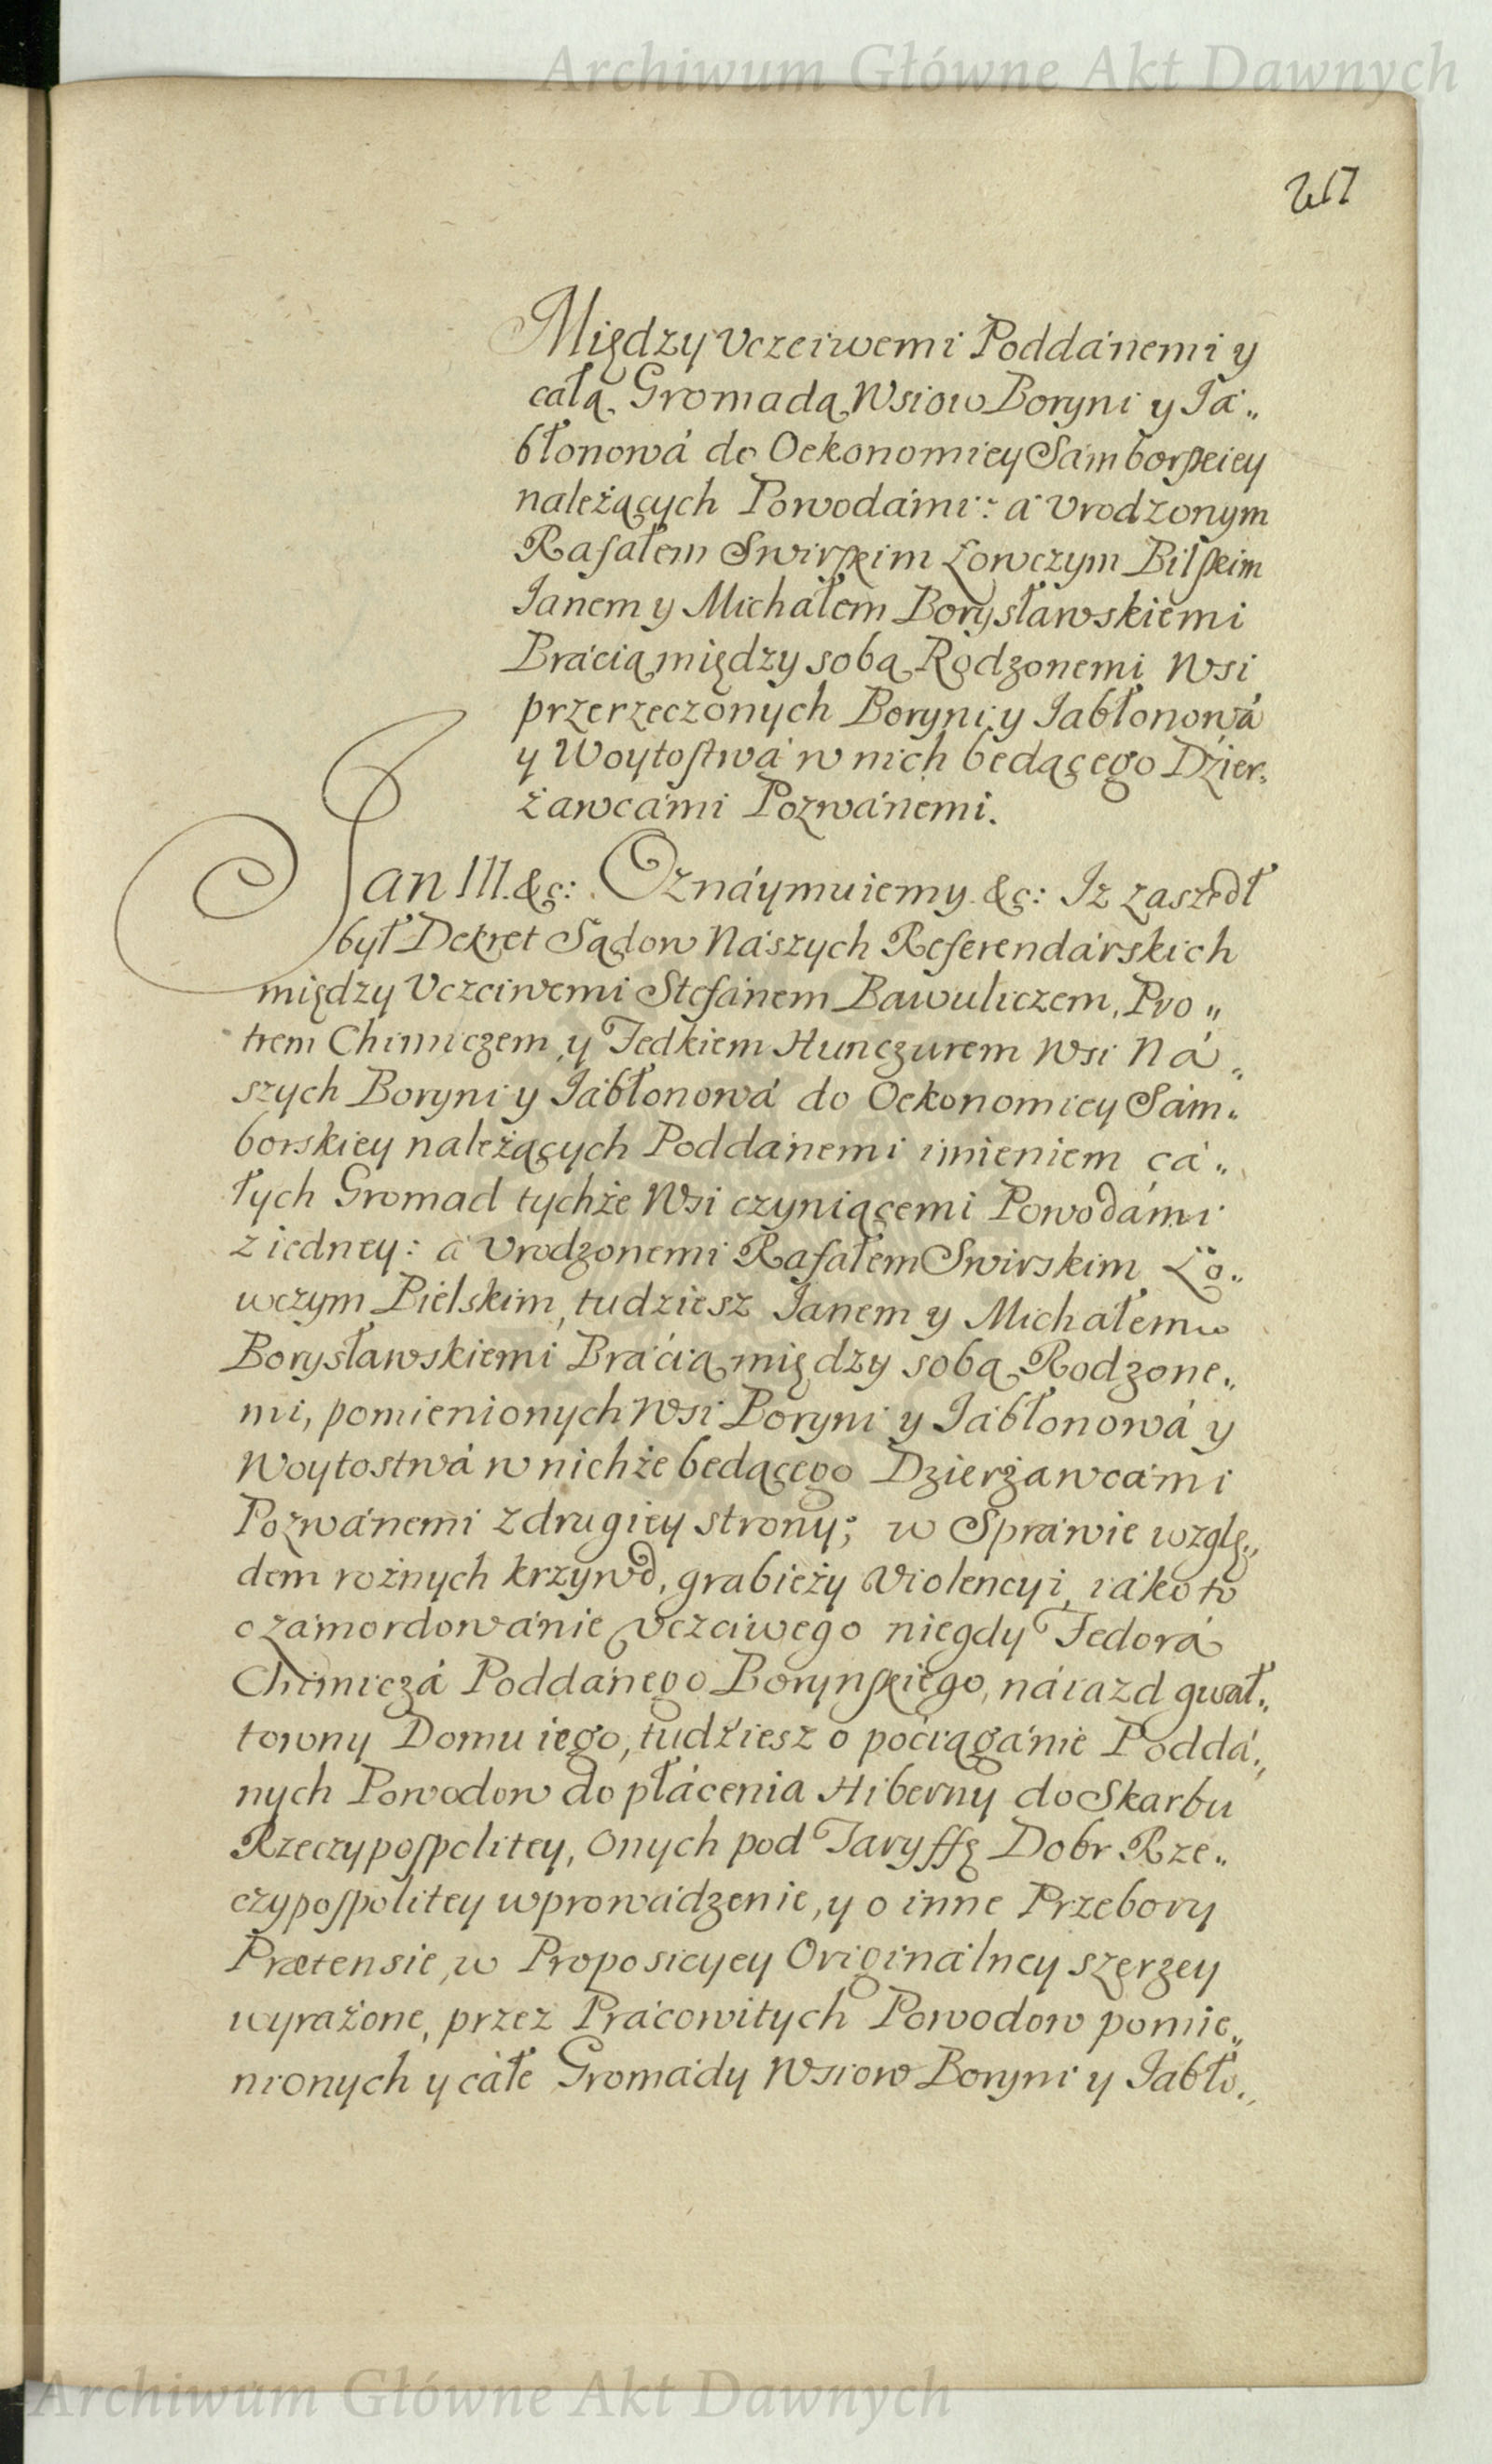 Archiwum Główne Akt Dawnych
217
Między Vczciwemi Poddánemi y
całą Gromadą Wsiow Boryni y Já„
błonowá do Oekonomiey Sámborskiey
należących Powodámi: á Vrodzonym
Rafałem Swirskim Łowczym Bilskim
Ianem y Michałem Borysławskiemi
Brácią między sobą Rodzonemi Wsi
przerzeczonych Boryni y Iabłonowá
y Woytostwá w nich bedącego Dzier„
żawcámi Pozwánemi.
Jan III. &c: Oznáymuiemy &c: Iż zaszedł
był Dekret Sądow Nászych Referendárskich
między Vczciwemi Stefánem Bawuliczem, Pio„
trem Chimiczem y Fedkiem Hunczurem Wsi Ná„
szych Boryni y Iábłonowá do Oekonomiey Sám„
borskiey należących Poddánemi imieniem cá„
łych Gromad tychże Wsi czyniącemi Powodámi
z iedney: á Vrodzonemi Rafałem Swirskim Ło„
wczym Bielskim, tudziesz Ianem y Michałem
Borysławskiemi Brácią między sobą Rodzone„
mi, pomienionych Wsi Boryni y Iábłonowá y
Woytostwá w nichże bedącego Dzierżawcámi
Pozwánemi z drugiey strony; w Spráwie wzglę„
dem rożnych krzywd, grabieży Violencyi, iáko to
o zámordowánie Vczciwego niegdy Fedorá
Chimiczá Poddánego Borynskiego, náiazd gwał„
towny Domu iego, tudziesz o pociągánie Poddá„
nych Powodow do płácenia Hiberny do Skarbu
Rzeczypospolitey, Onych pod Taryffę Dobr Rze„
czypospolitey wprowádzenie, y o inne Przebory
Prætensie, w Proposicyey Originálney szerzey
wyrażone, przez Prácowitych Powodow pomie„
nionych y cáłe Gromády Wsiow Boryni y Iabło„
Archiwum Główne Akt Dawnych